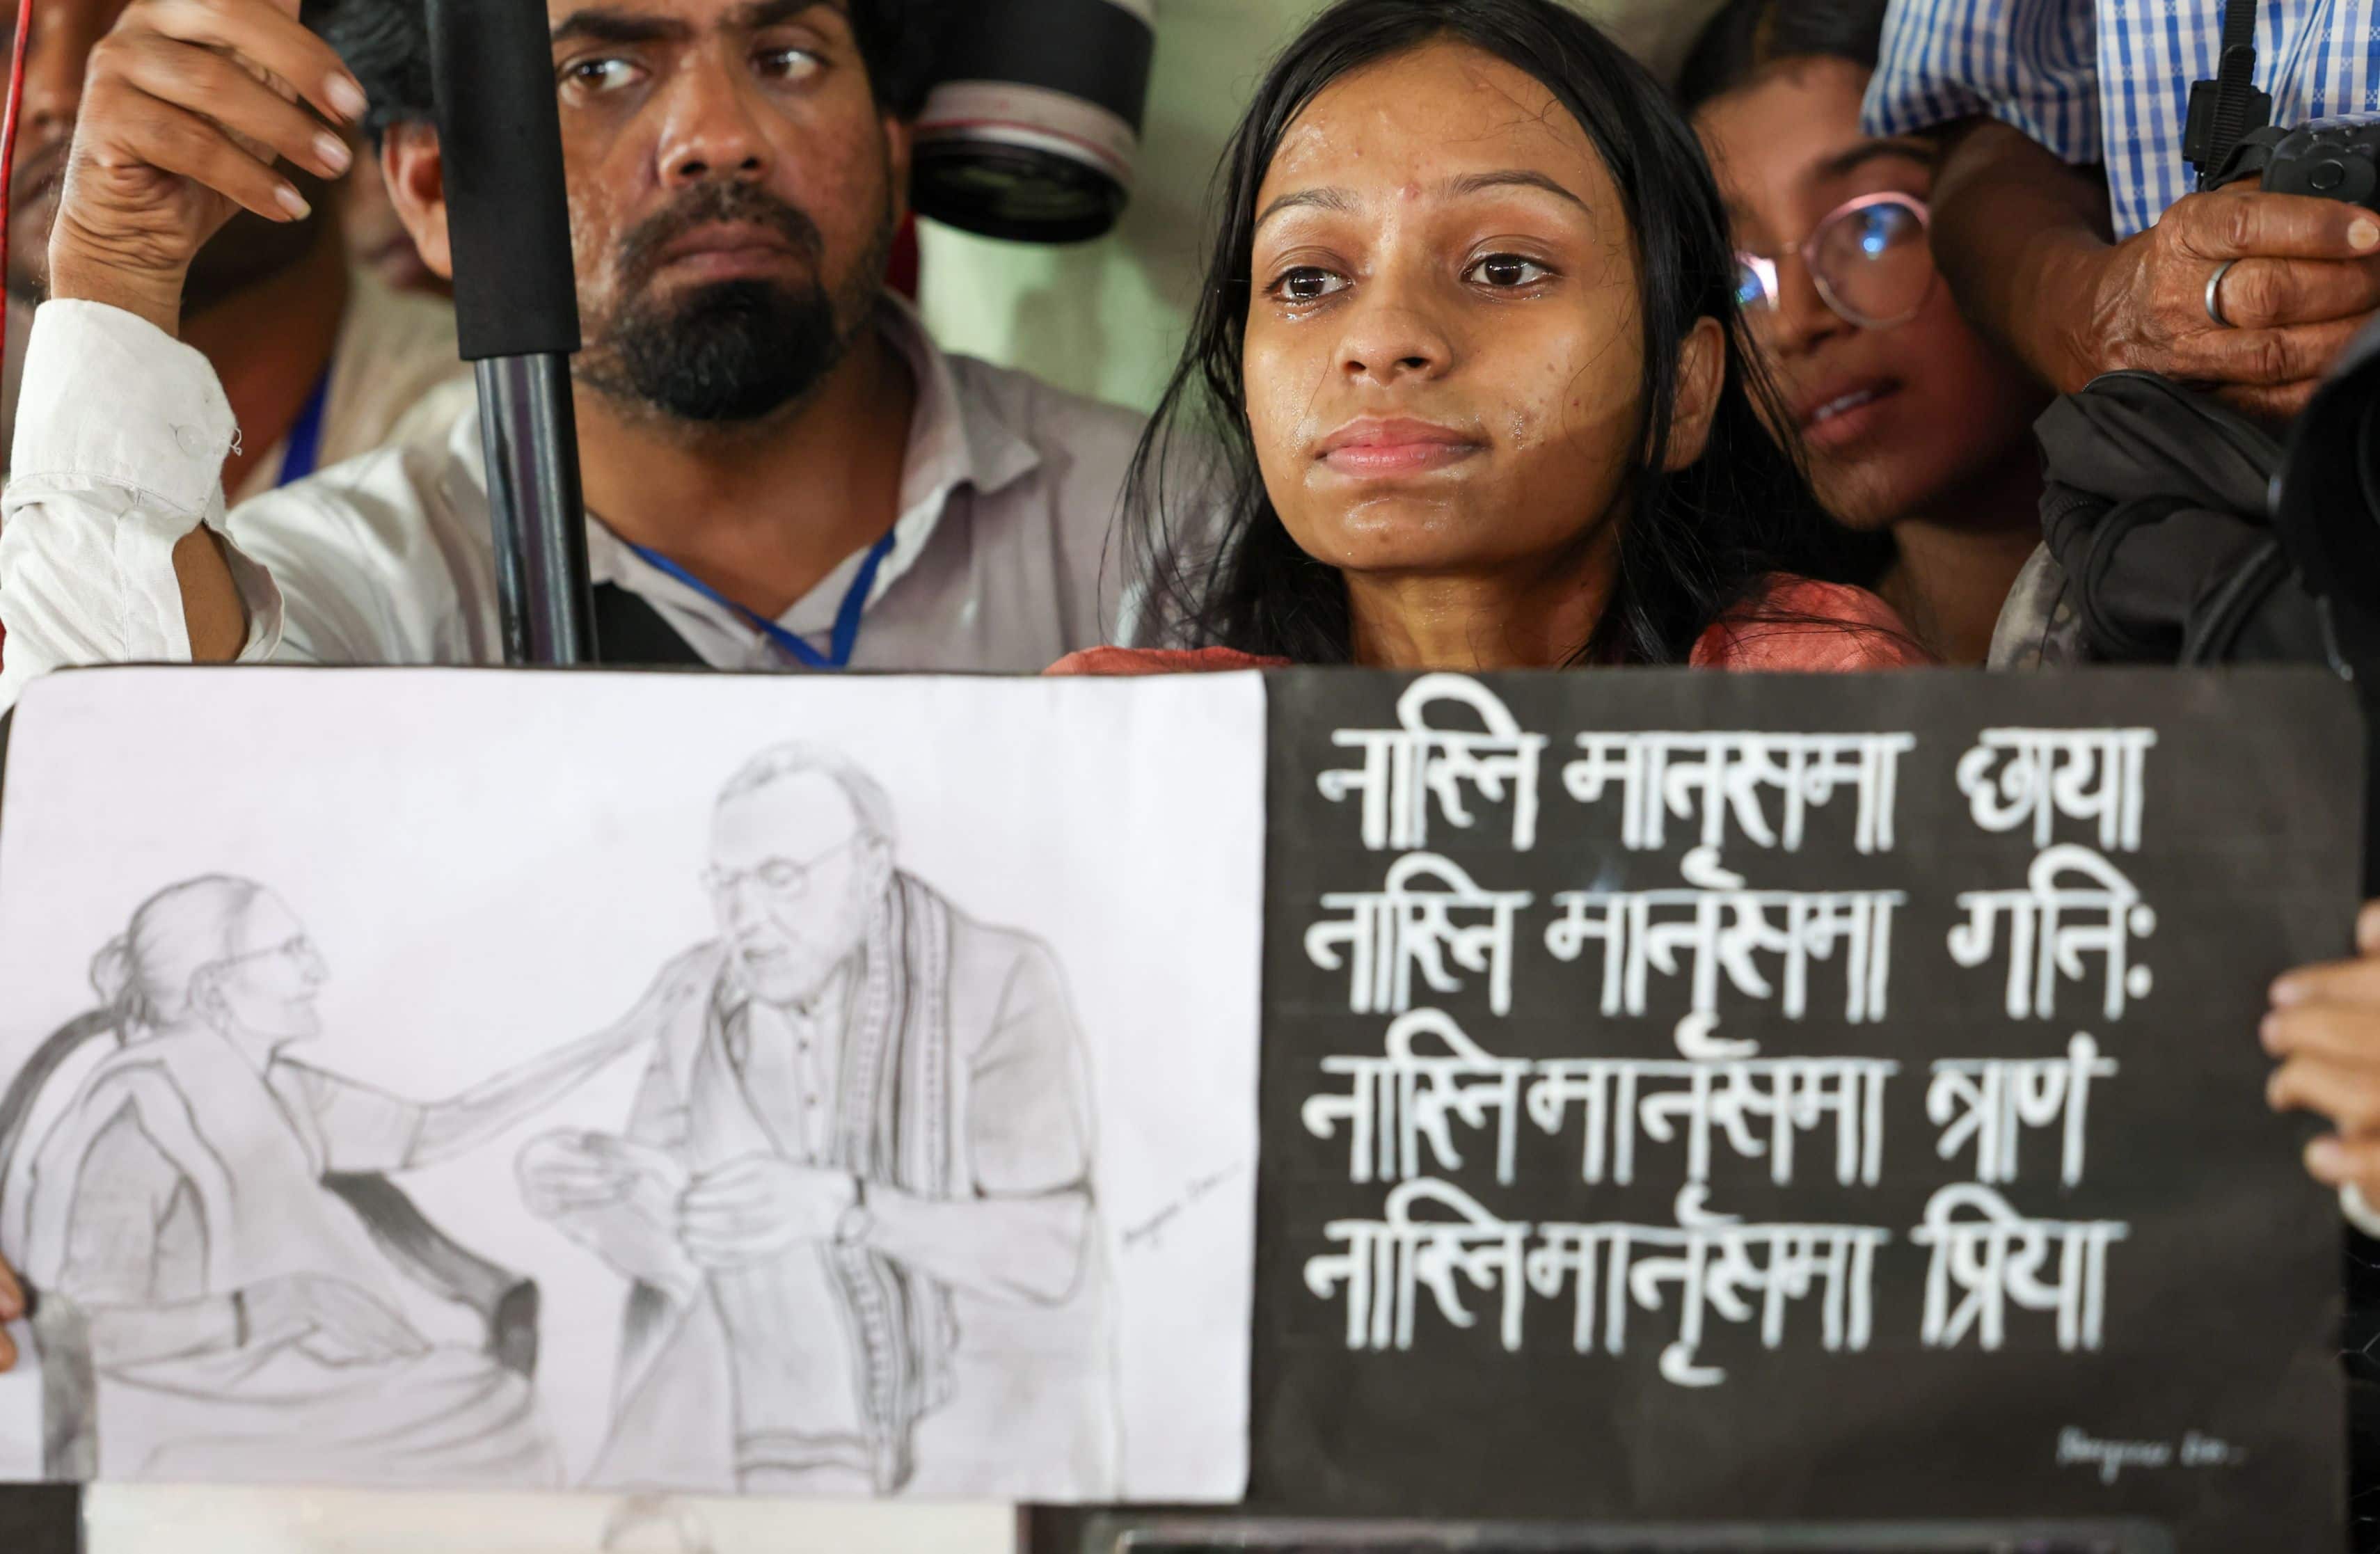 नास्ति मातृसमा छाया
नास्ति मातृसमा गतिः
नास्तिमातृसमा त्राणं
नास्तिमातृसमा प्रिया